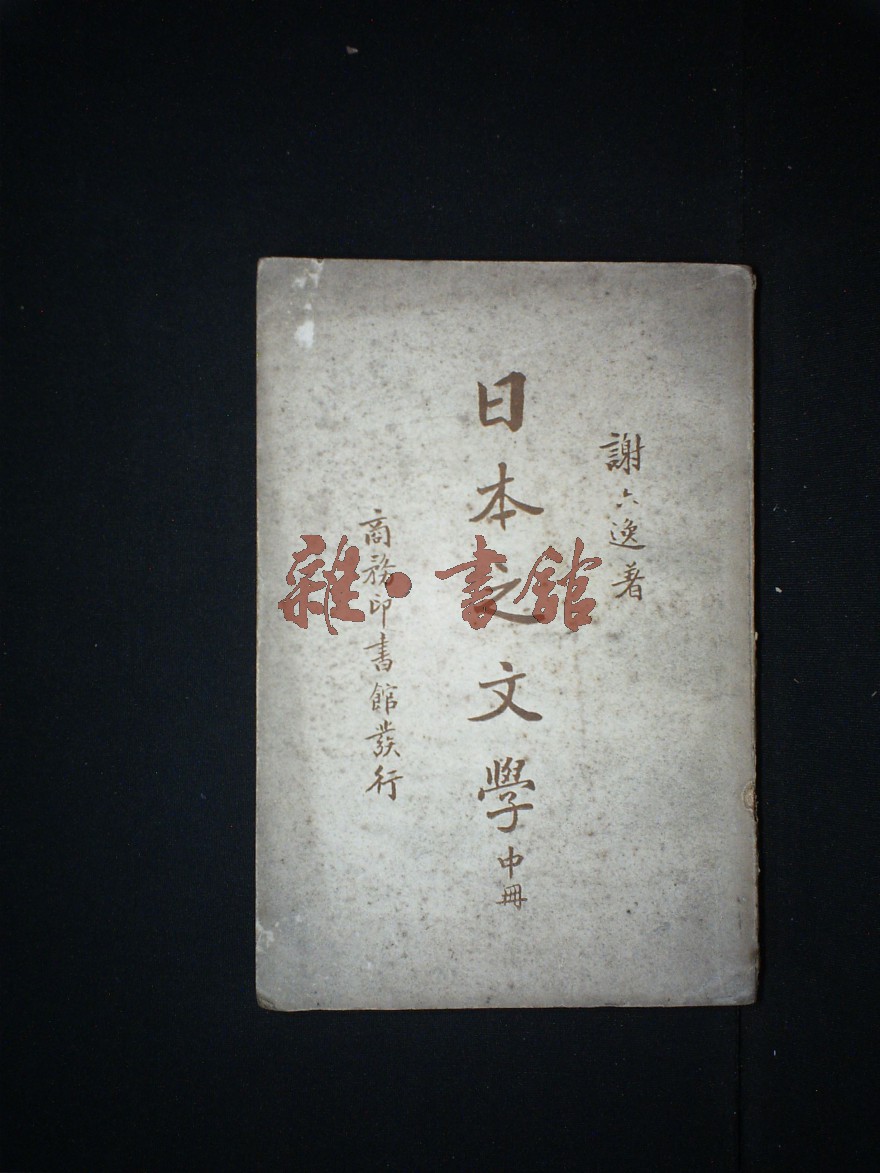 謝六逸著
日本之文學中冊
商務印書館發行
雜·書館